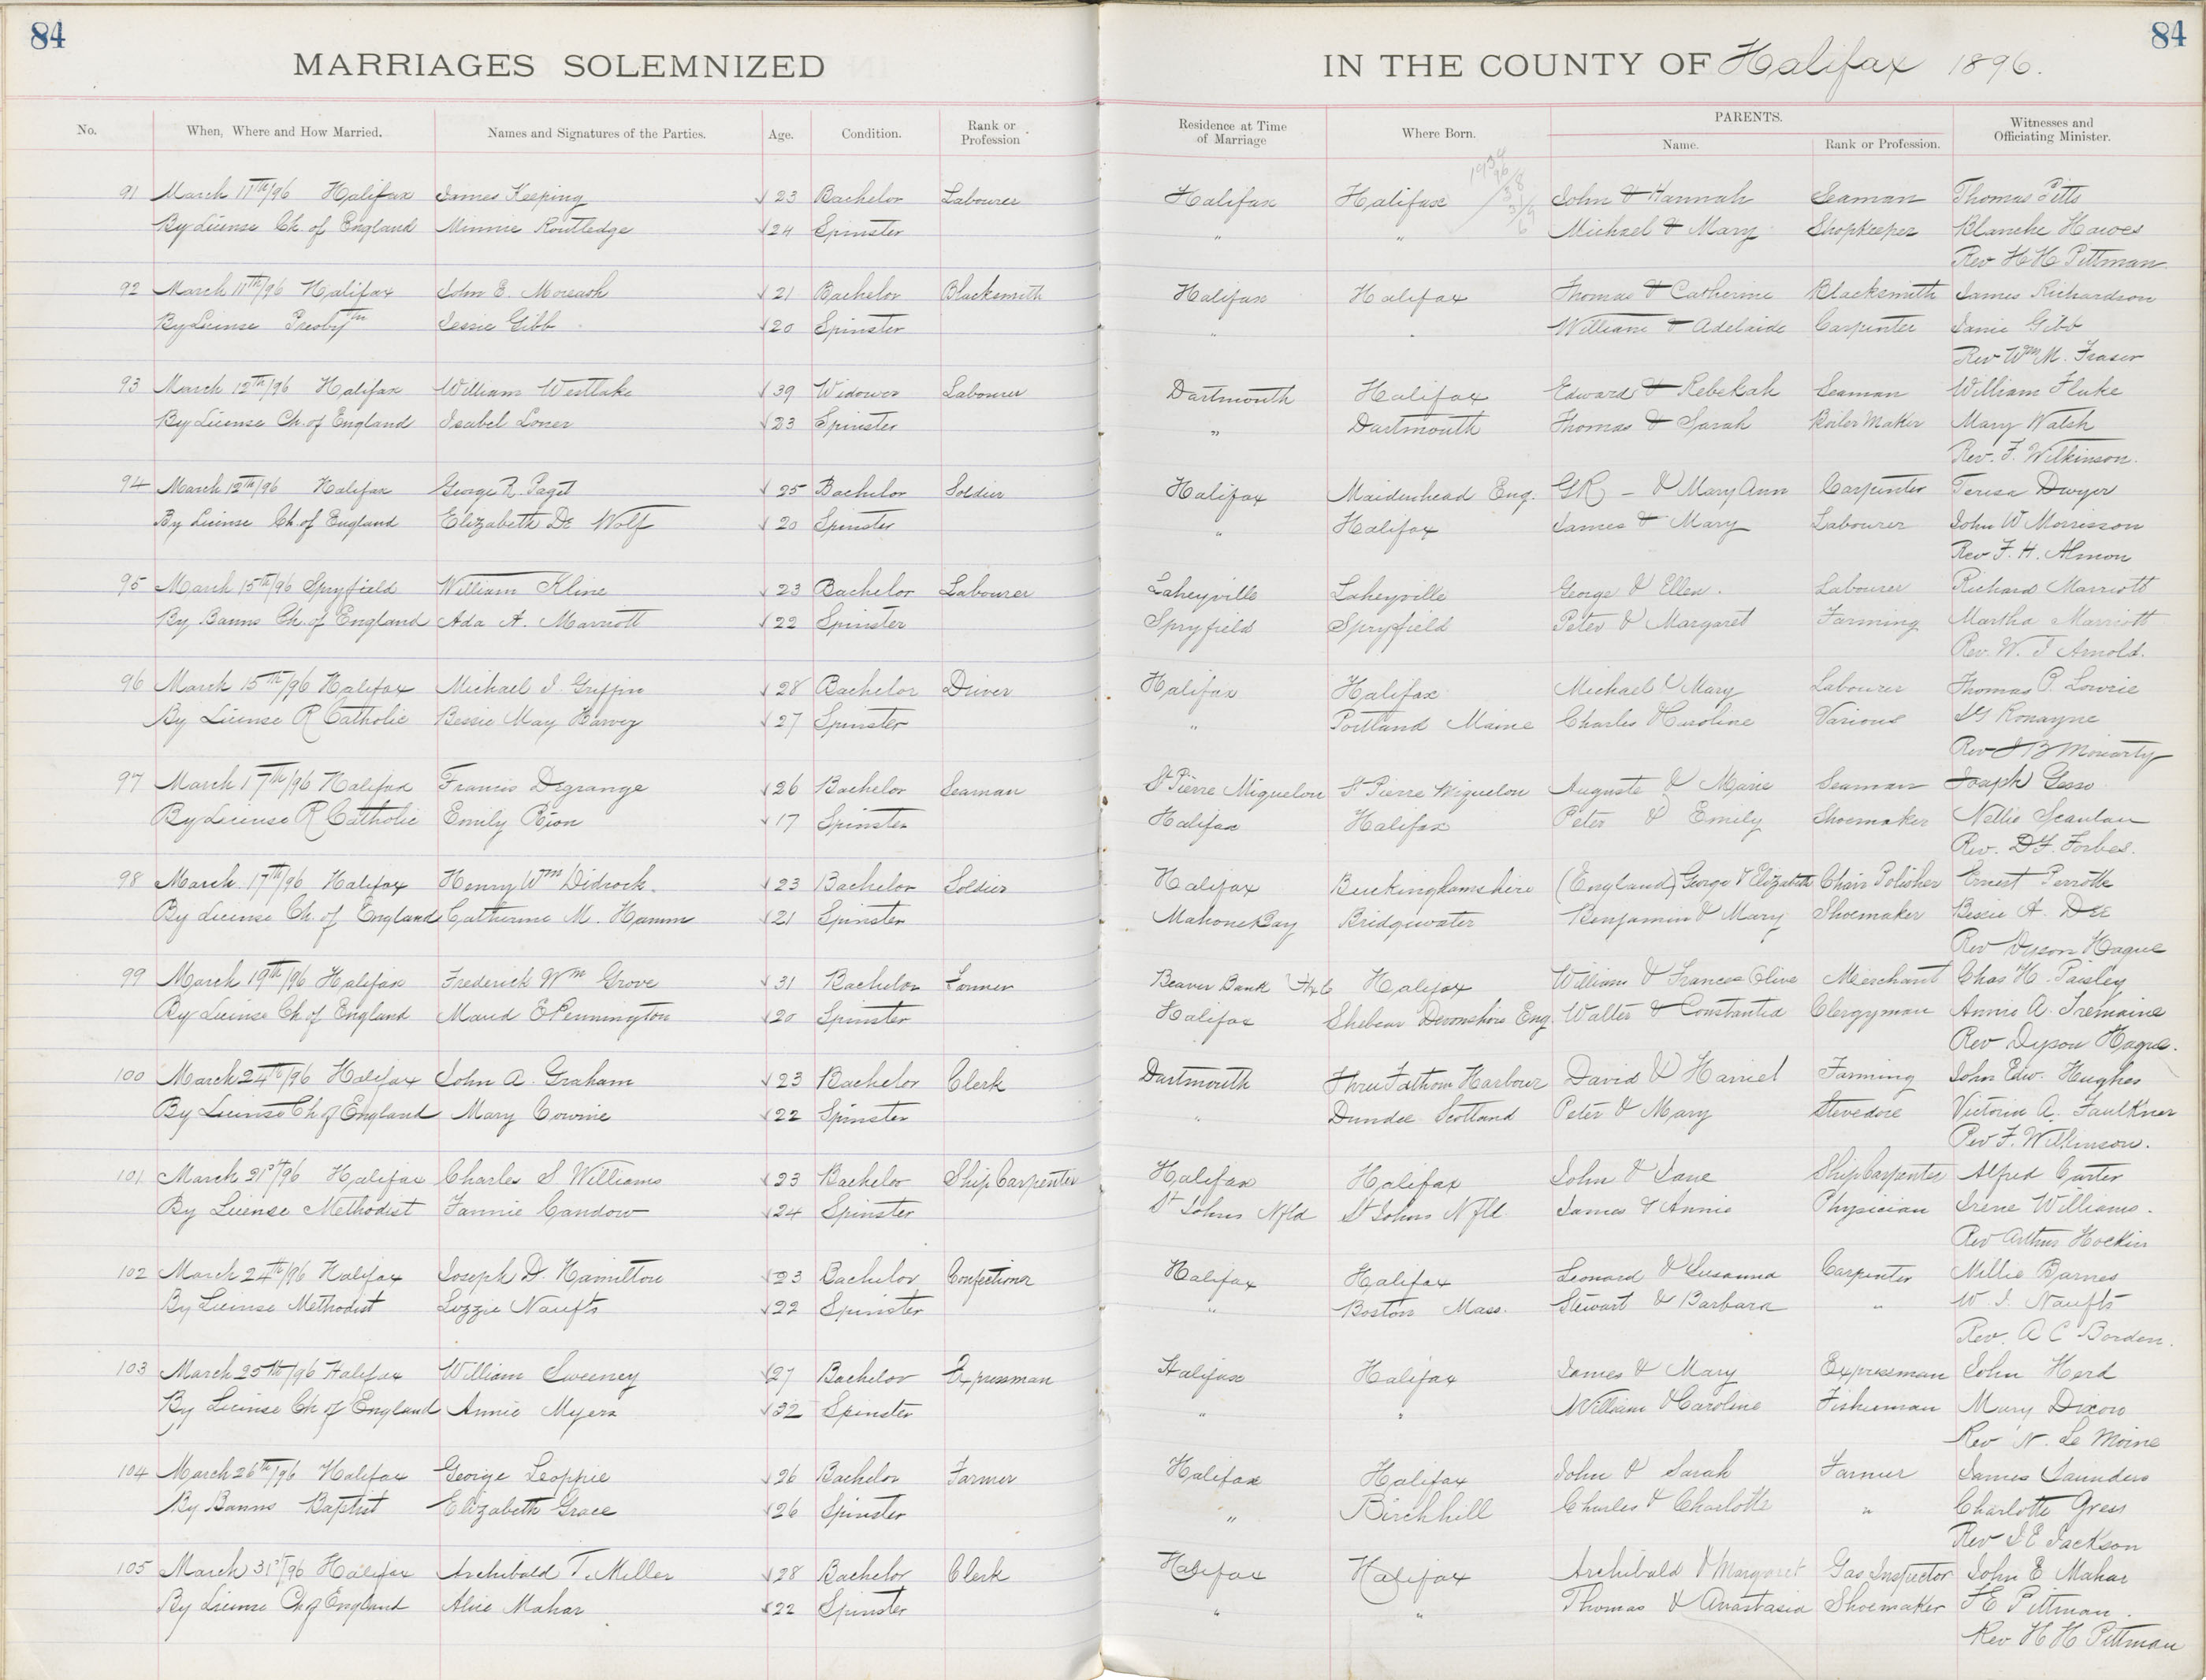 84
84
MARRIAGES SOLEMNIZED IN THE COUNTY OF Halifax 1896.
No. When, Where and How Married. Names and Signatures of the Parties. Age. Condition. Rank or Profession Residence at Time of Marriage Where Born. PARENTS. Name. Rank or Profession. Witnesses and Officiating Minister.
91 March 11th/96 Halifax James Keeping √23 Bachelor Labourer Halifax Halifax John & Hannah Seaman Thomas Pitts
By License Ch. of England Minnie Routledge √24 Spinster " " Michael & Mary Shopkeeper Blanche Hawes
Rev H H Pittman
92 March 11th/96 Halifax John E. Moreash √21 Bachelor Blacksmith Halifax Halifax Thomas & Catherine Blacksmith James Richardson
By License Presbytn Jessie Gibb √20 Spinster " " William & Adelaide Carpenter Janie Gibb
Rev Wm M. Fraser
93 March 12th/96 Halifax William Westlake √39 Widower Labourer Dartmouth Halifax Edward & Rebekah Seaman William Fluke
By License Ch. of England Isabel Loner √23 Spinster " Dartmouth Thomas & Sarah Boiler Maker Mary Walsh
Rev. F. Wilkinson.
94 March 12th/96 Halifax George R. Paget √25 Bachelor Soldier Halifax Maidenhead Eng. GR - & Mary Ann Carpenter Teresa Dwyer
By License Ch of England Elizabeth De Wolf √20 Spinster " Halifax James & Mary Labourer John W Morrisson
Rev F. H. Almon
95 March 15th/96 Spryfield William Kline √23 Bachelor Labourer Laheyville Laheyville George & Ellen. Labourer Richard Marriott
By Banns Ch. of England Ada A. Marriott √22 Spinster Spryfield Spryfield Peter & Margaret Farming Martha Marriott
Rev. W. J Arnold.
96 March 15th/96 Halifax Michael J. Griffin √28 Bachelor Driver Halifax Halifax Michael & Mary Labourer Thomas P. Lowrie
By License R Catholic Bessie May Harvey √27 Spinster " Portland Maine Charles & Caroline Various Ronayne
Rev J B Moriarty
97 March 17th/96 Halifax Francis Degrange √26 Bachelor Seaman St Pierre Miquelon St Pierre Miquelon Auguste & Marie Seaman Joseph Gesso
By License R Catholic Emily Rion √17 Spinster Halifax Halifax Peter & Emily Shoemaker Nellie Scanlan
Rev. D F. Forbes.
98 March 17th/96 Halifax Henry Wm Didcock. √23 Bachelor Soldier Halifax Buckinghamshire (England) George & Elizabeth Chair Polisher Ernest Perrotte
By License Ch. of England Catherine M. Hamm √21 Spinster Mahone Bay Bridgewater Benjamin & Mary Shoemaker Bessie A. Dee
Rev Dyson Hague
99 March 19th/96 Halifax Frederick Wm Grove √31 Bachelor Farmer Beaver Bank Hx Co Halifax William & Frances Olive Merchant Chas H. Paisley
By License Ch. of England Maud E Pennington √20 Spinster Halifax Shebear Devonshire Eng. Walter & Constantia Clergyman Annie A. Tremaine
Rev Dyson Hague.
100 March 24th/96 Halifax John A. Graham √23 Bachelor Clerk Dartmouth Three Fathom Harbour David & Harriet Farming John Edw. Hughes
By License Ch of England Mary Cowrie √22 Spinster " Dundee Scotland Peter & Mary Stevedore Victoria A. Faulkner
Rev F. Wilkinson.
101 March 21st/96 Halifax Charles S Williams √23 Bachelor Ship Carpenter Halifax Halifax John & Jane Ship Carpenter Alfred Carter
By License Methodist Fannie Candow √24 Spinster St Johns Nfld St Johns Nfld James & Annie Physician Irene Williams.
Rev Arthur Hockin
102 March 24th/96 Halifax Joseph D. Hamilton √23 Bachelor Confectioner Halifax Halifax Leonard & Susanna Carpenter Millie Barnes
By License Methodist Lizzie Naufts √22 Spinster " Boston Mass. Stewart & Barbara " W. J. Naufts
Rev. A C Borden.
103 March 25th/96 Halifax William Sweeney √27 Bachelor Expressman Halifax Halifax James & Mary Expressman John Herd
By License Ch of England Annie Myers √32 Spinster " " William & Caroline Fisherman Mary Dixon
Rev N. Le Moine
104 March 26th/96 Halifax George Leoppie √26 Bachelor Farmer Halifax Halifax John & Sarah Farmer James Saunders
By Banns Baptist Elizabeth Grace √26 Spinster " Birchhill Charles & Charlotte " Charlotte Gress
Rev J E Jackson
105 March 31st/96 Halifax Archibald T. Miller √28 Bachelor Clerk Halifax Halifax Archibald & Margaret Gas Inspector John E Mahar
By License Ch of England Alice Mahar √22 Spinster " " Thomas & Anastasia Shoemaker F E Pittman.
Rev H H Pittman